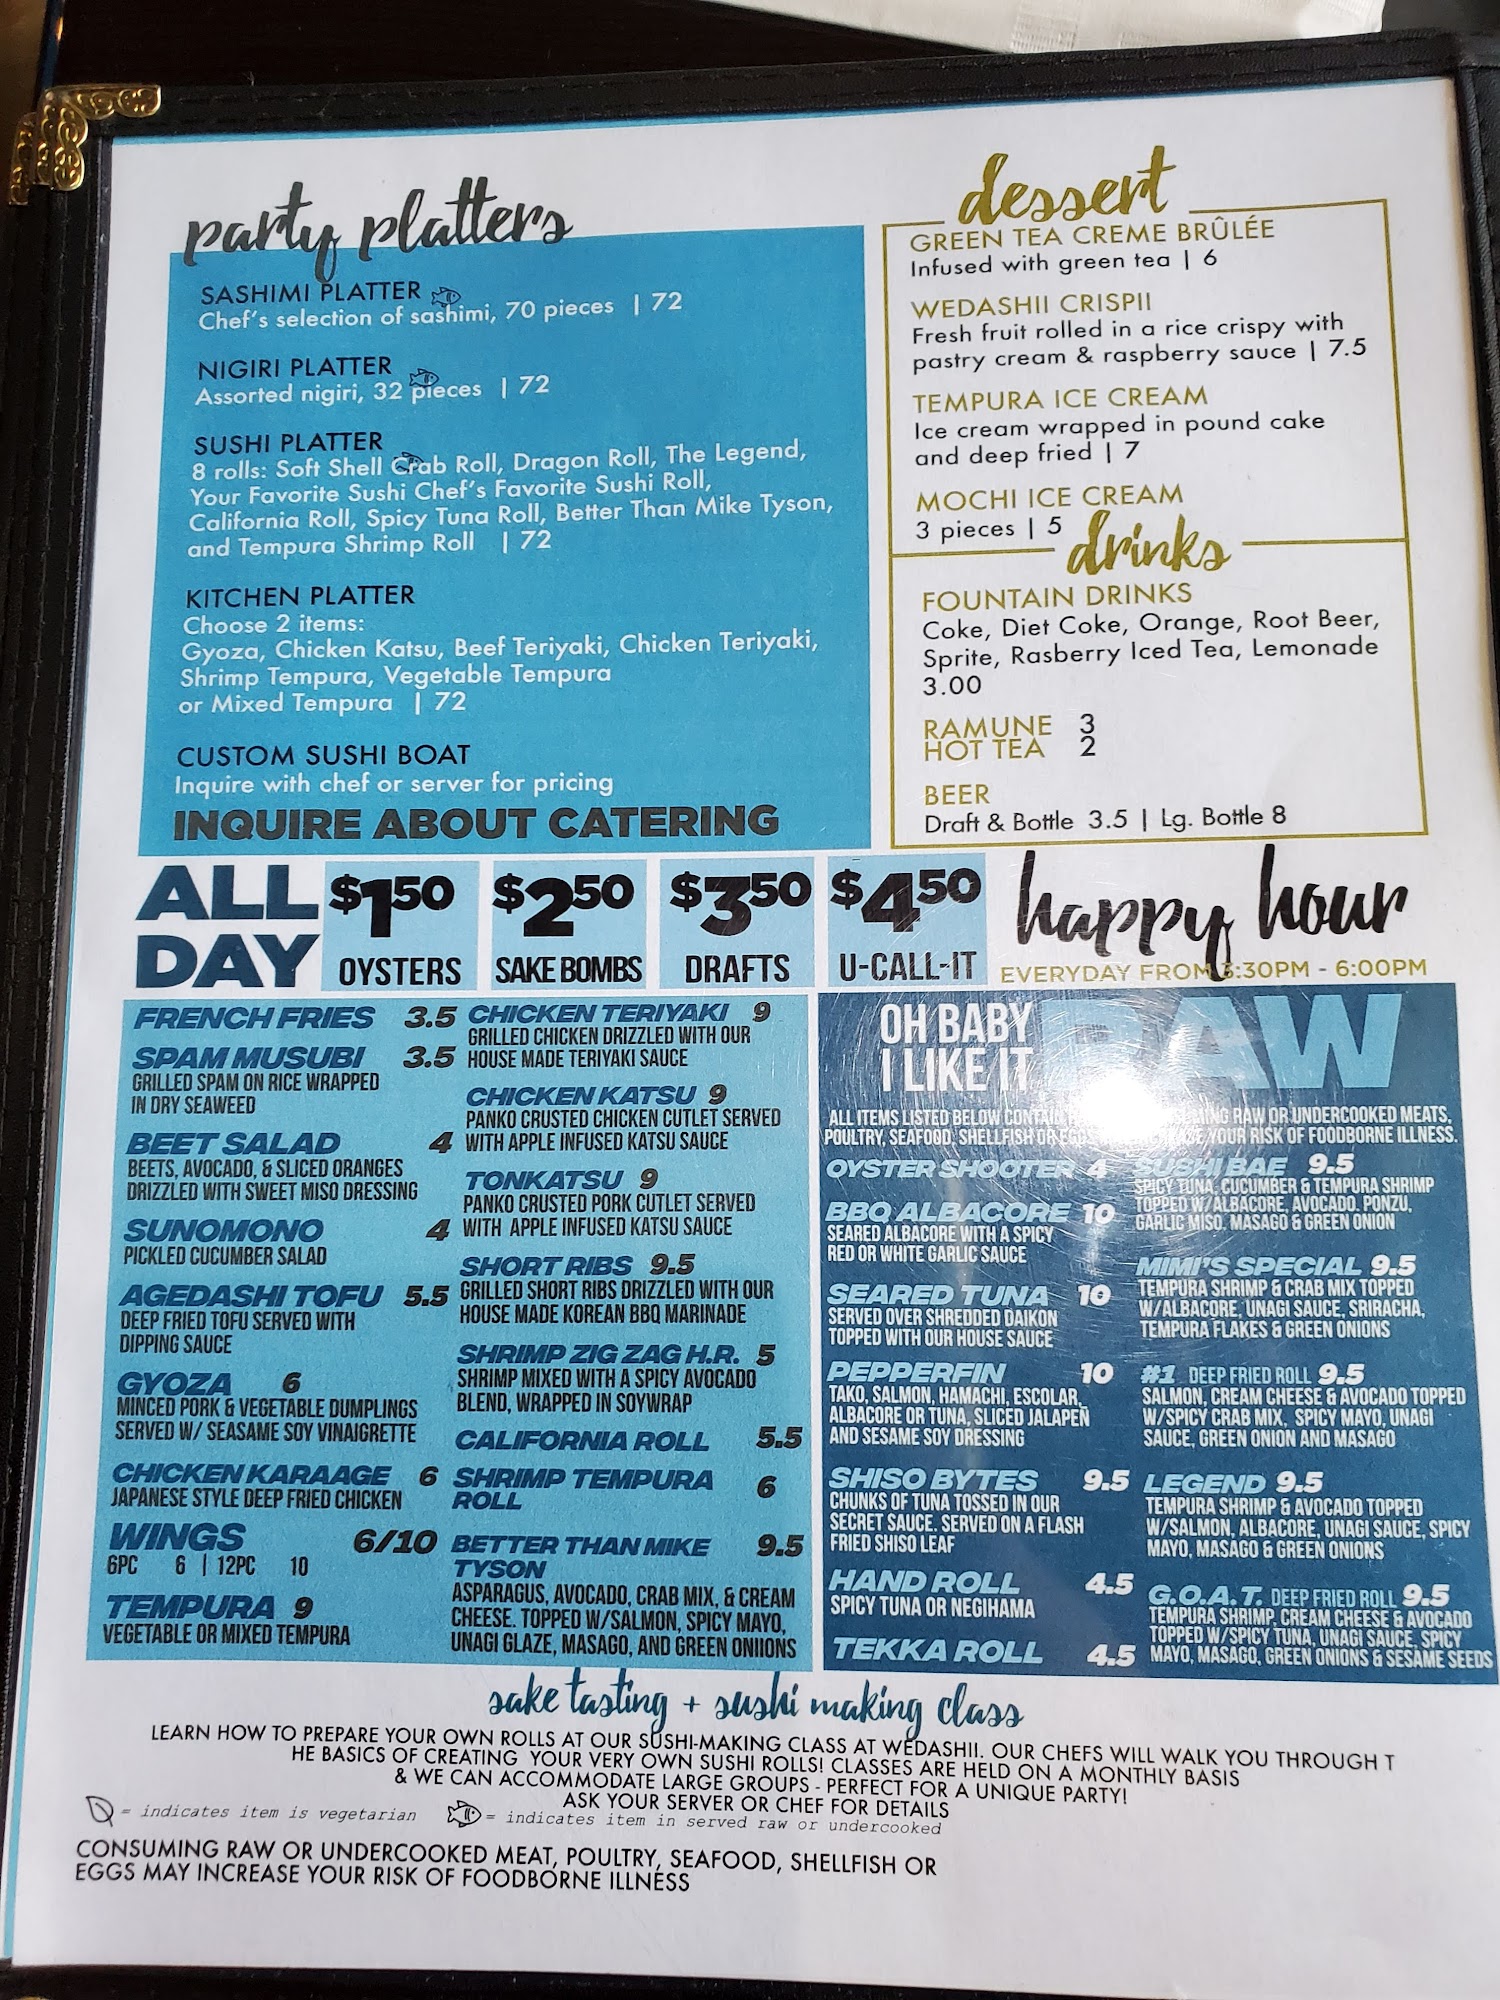 party platters
SASHIMI PLATTER
Chef's selection of sashimi, 70 pieces | 72
NIGIRI PLATTER
Assorted nigiri, 32 pieces | 72
SUSHI PLATTER
8 rolls: Soft Shell Crab Roll, Dragon Roll, The Legend,
Your Favorite Sushi Chef's Favorite Sushi Roll,
California Roll, Spicy Tuna Roll, Better Than Mike Tyson,
and Tempura Shrimp Roll | 72
KITCHEN PLATTER
Choose 2 items:
Gyoza, Chicken Katsu, Beef Teriyaki, Chicken Teriyaki,
Shrimp Tempura, Vegetable Tempura
or Mixed Tempura | 72
CUSTOM SUSHI BOAT
Inquire with chef or server for pricing
INQUIRE ABOUT CATERING
dessert
GREEN TEA CREME BRÛLÉE
Infused with green tea | 6
WEDASHII CRISPII
Fresh fruit rolled in a rice crispy with
pastry cream & raspberry sauce | 7.5
TEMPURA ICE CREAM
Ice cream wrapped in pound cake
and deep fried | 7
MOCHI ICE CREAM
3 pieces | 5
drinks
FOUNTAIN DRINKS
Coke, Diet Coke, Orange, Root Beer,
Sprite, Rasberry Iced Tea, Lemonade
3.00
RAMUNE 3
HOT TEA 2
BEER
Draft & Bottle 3.5 | Lg. Bottle 8
ALL
DAY
$1.50
OYSTERS
$2.50
SAKE BOMBS
$3.50
DRAFTS
$4.50
U-CALL-IT
happy hour
EVERYDAY FROM 3:30PM - 6:00PM
FRENCH FRIES 3.5
SPAM MUSUBI 3.5
GRILLED SPAM ON RICE WRAPPED
IN DRY SEAWEED
BEET SALAD 4
BEETS, AVOCADO, & SLICED ORANGES
DRIZZLED WITH SWEET MISO DRESSING
SUNOMONO 4
PICKLED CUCUMBER SALAD
AGEDASHI TOFU 5.5
DEEP FRIED TOFU SERVED WITH
DIPPING SAUCE
GYOZA 6
MINCED PORK & VEGETABLE DUMPLINGS
SERVED W/ SEASAME SOY VINAIGRETTE
CHICKEN KARAAGE 6
JAPANESE STYLE DEEP FRIED CHICKEN
WINGS 6/10
6PC 6 | 12PC 10
TEMPURA 9
VEGETABLE OR MIXED TEMPURA
CHICKEN TERIYAKI 9
GRILLED CHICKEN DRIZZLED WITH OUR
HOUSE MADE TERIYAKI SAUCE
CHICKEN KATSU 9
PANKO CRUSTED CHICKEN CUTLET SERVED
WITH APPLE INFUSED KATSU SAUCE
TONKATSU 9
PANKO CRUSTED PORK CUTLET SERVED
WITH APPLE INFUSED KATSU SAUCE
SHORT RIBS 9.5
GRILLED SHORT RIBS DRIZZLED WITH OUR
HOUSE MADE KOREAN BBQ MARINADE
SHRIMP ZIG ZAG H.R. 5
SHRIMP MIXED WITH A SPICY AVOCADO
BLEND, WRAPPED IN SOYWRAP
CALIFORNIA ROLL 5.5
SHRIMP TEMPURA 6
ROLL
BETTER THAN MIKE 9.5
TYSON
ASPARAGUS, AVOCADO, CRAB MIX, & CREAM
CHEESE. TOPPED W/SALMON, SPICY MAYO,
UNAGI GLAZE, MASAGO, AND GREEN ONIIONS
OH BABY
I LIKE IT
RAW
ALL ITEMS LISTED BELOW CONTAIN RAW OR UNDERCOOKED MEATS,
POULTRY, SEAFOOD, SHELLFISH OR EGGS YOUR RISK OF FOODBORNE ILLNESS.
OYSTER SHOOTER 4
BBQ ALBACORE 10
SEARED ALBACORE WITH A SPICY
RED OR WHITE GARLIC SAUCE
SEARED TUNA 10
SERVED OVER SHREDDED DAIKON
TOPPED WITH OUR HOUSE SAUCE
PEPPERFIN 10
TAKO, SALMON, HAMACHI, ESCOLAR,
ALBACORE OR TUNA, SLICED JALAPEÑ
AND SESAME SOY DRESSING
SHISO BYTES 9.5
CHUNKS OF TUNA TOSSED IN OUR
SECRET SAUCE. SERVED ON A FLASH
FRIED SHISO LEAF
HAND ROLL 4.5
SPICY TUNA OR NEGIHAMA
TEKKA ROLL 4.5
SUSHI BAE 9.5
SPICY TUNA, CUCUMBER & TEMPURA SHRIMP
TOPPED W/ALBACORE, AVOCADO, PONZU,
GARLIC MISO, MASAGO & GREEN ONION
MIMI'S SPECIAL 9.5
TEMPURA SHRIMP & CRAB MIX TOPPED
W/ALBACORE, UNAGI SAUCE, SRIRACHA,
TEMPURA FLAKES & GREEN ONIONS
#1 DEEP FRIED ROLL 9.5
SALMON, CREAM CHEESE & AVOCADO TOPPED
W/SPICY CRAB MIX, SPICY MAYO, UNAGI
SAUCE, GREEN ONION AND MASAGO
LEGEND 9.5
TEMPURA SHRIMP & AVOCADO TOPPED
W/SALMON, ALBACORE, UNAGI SAUCE, SPICY
MAYO, MASAGO & GREEN ONIONS
G.O.A.T. DEEP FRIED ROLL 9.5
TEMPURA SHRIMP, CREAM CHEESE & AVOCADO
TOPPED W/SPICY TUNA, UNAGI SAUCE, SPICY
MAYO, MASAGO, GREEN ONIONS & SESAME SEEDS
sake tasting + sushi making class
LEARN HOW TO PREPARE YOUR OWN ROLLS AT OUR SUSHI-MAKING CLASS AT WEDASHII. OUR CHEFS WILL WALK YOU THROUGH T
HE BASICS OF CREATING YOUR VERY OWN SUSHI ROLLS! CLASSES ARE HELD ON A MONTHLY BASIS
& WE CAN ACCOMMODATE LARGE GROUPS - PERFECT FOR A UNIQUE PARTY!
ASK YOUR SERVER OR CHEF FOR DETAILS
= indicates item is vegetarian = indicates item in served raw or undercooked
CONSUMING RAW OR UNDERCOOKED MEAT, POULTRY, SEAFOOD, SHELLFISH OR
EGGS MAY INCREASE YOUR RISK OF FOODBORNE ILLNESS